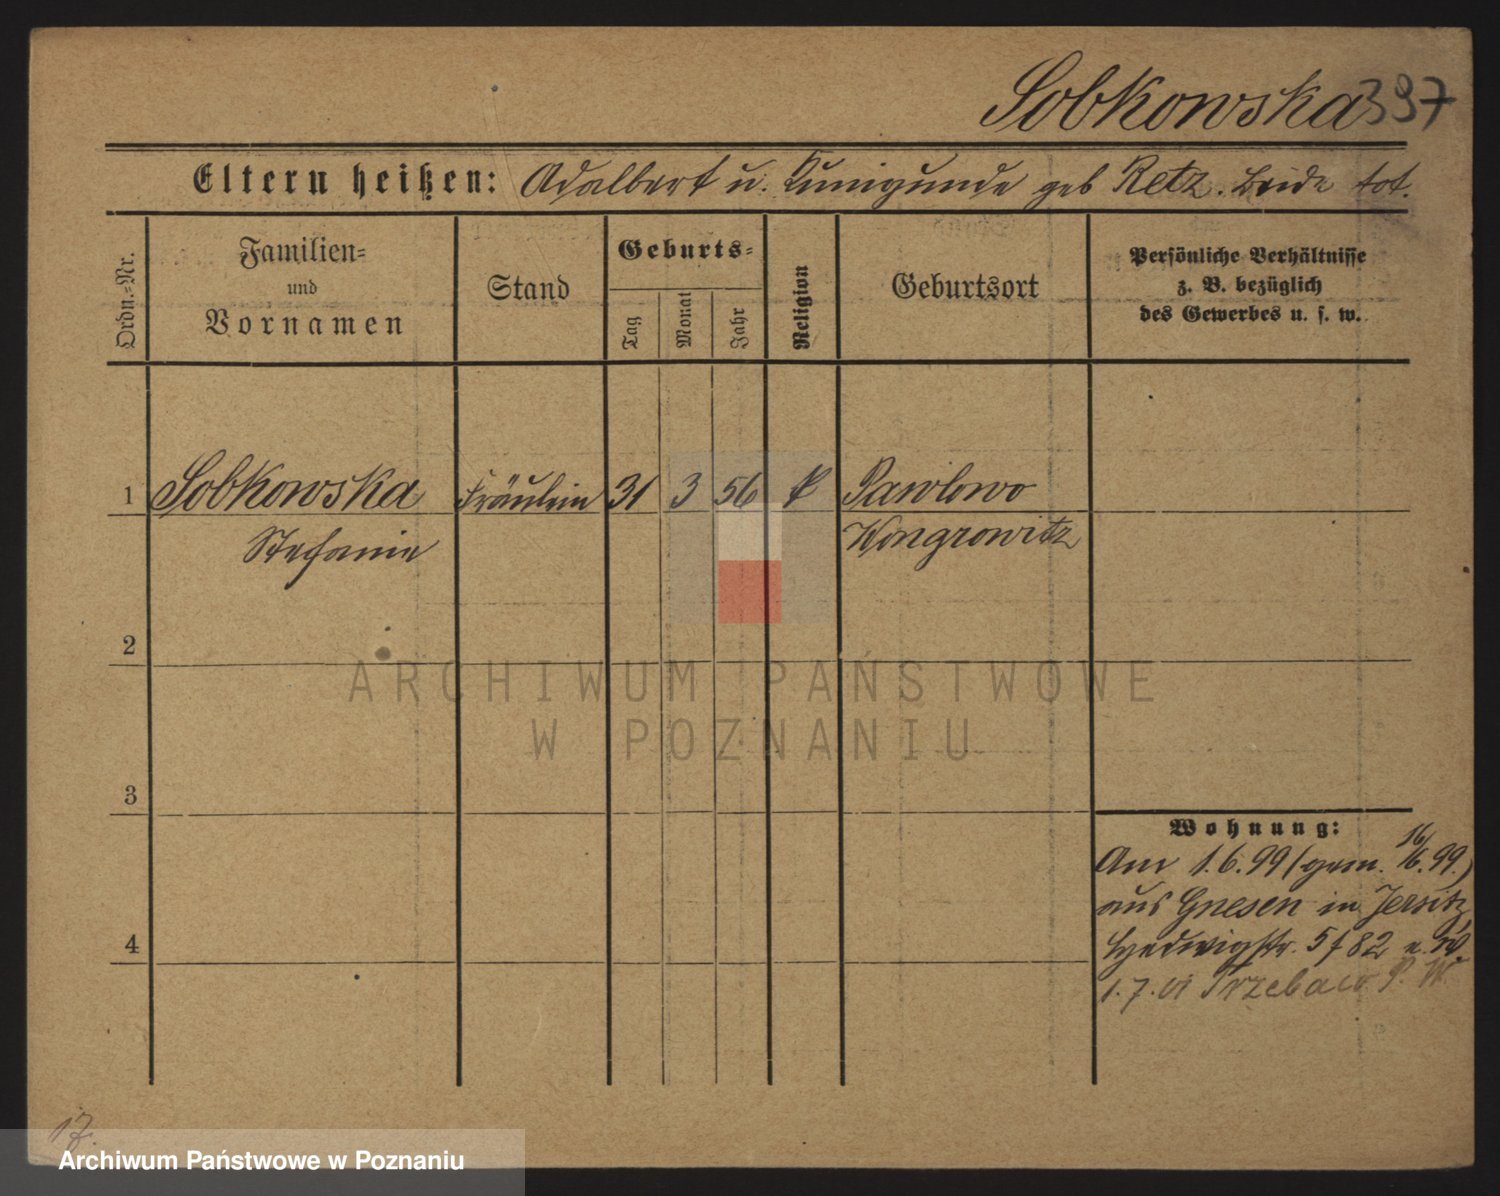 Sobkowska 397
Eltern heißen: Adalbert u. Kunigunde geb Retz. beide tot.
Ordn.-Nr.
Familien-
und
Vornamen
Stand
Geburts-
Tag
Monat
Jahr
Religion
Geburtsort
Persönliche Verhältnisse
z. B. bezüglich
des Gewerbes u. s. w.
1 Sobkowska Fräulein 31 3 56 k Pawlowo
Stefanie Wongrowitz
2
3
4
Wohnung:
Am 1.6.99 (gem. 16/6.99.)
aus Gnesen in Jersitz,
Hedwigstr. 5 f 82
1.7.01 Trzebaw P. W.
17.
ARCHIWUM PAŃSTWOWE
W POZNANIU
Archiwum Państwowe w Poznaniu